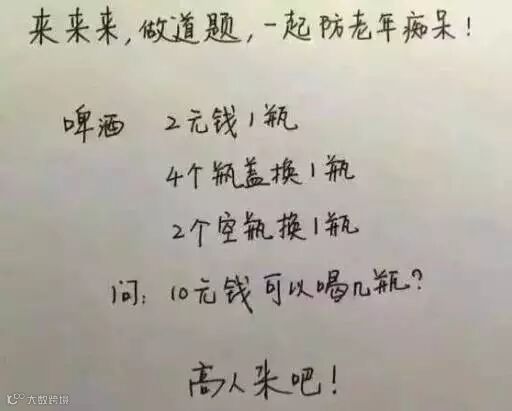 来来来,做道题,一起防老年痴呆!
啤酒 2元钱1瓶
4个瓶盖换1瓶
2个空瓶换1瓶
问: 10元钱可以喝几瓶?
高人来吧!
大数跨境